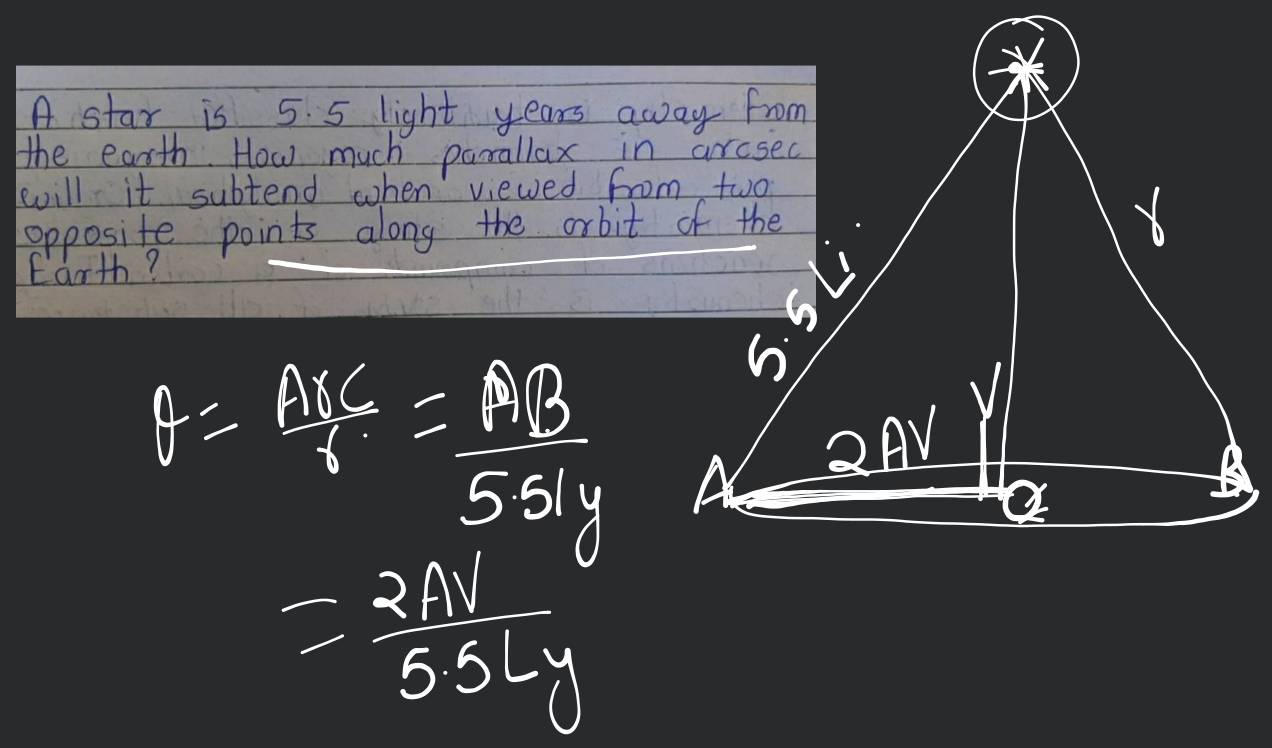 A star is 5.5 light years away from
the earth. How much parallax in arcsec
will it subtend when viewed from two
opposite points along the orbit of the
Earth?
θ = Arc/r = AB/5.5ly
= 2AU/5.5Ly
5.5 Li
r
2AU
A
B